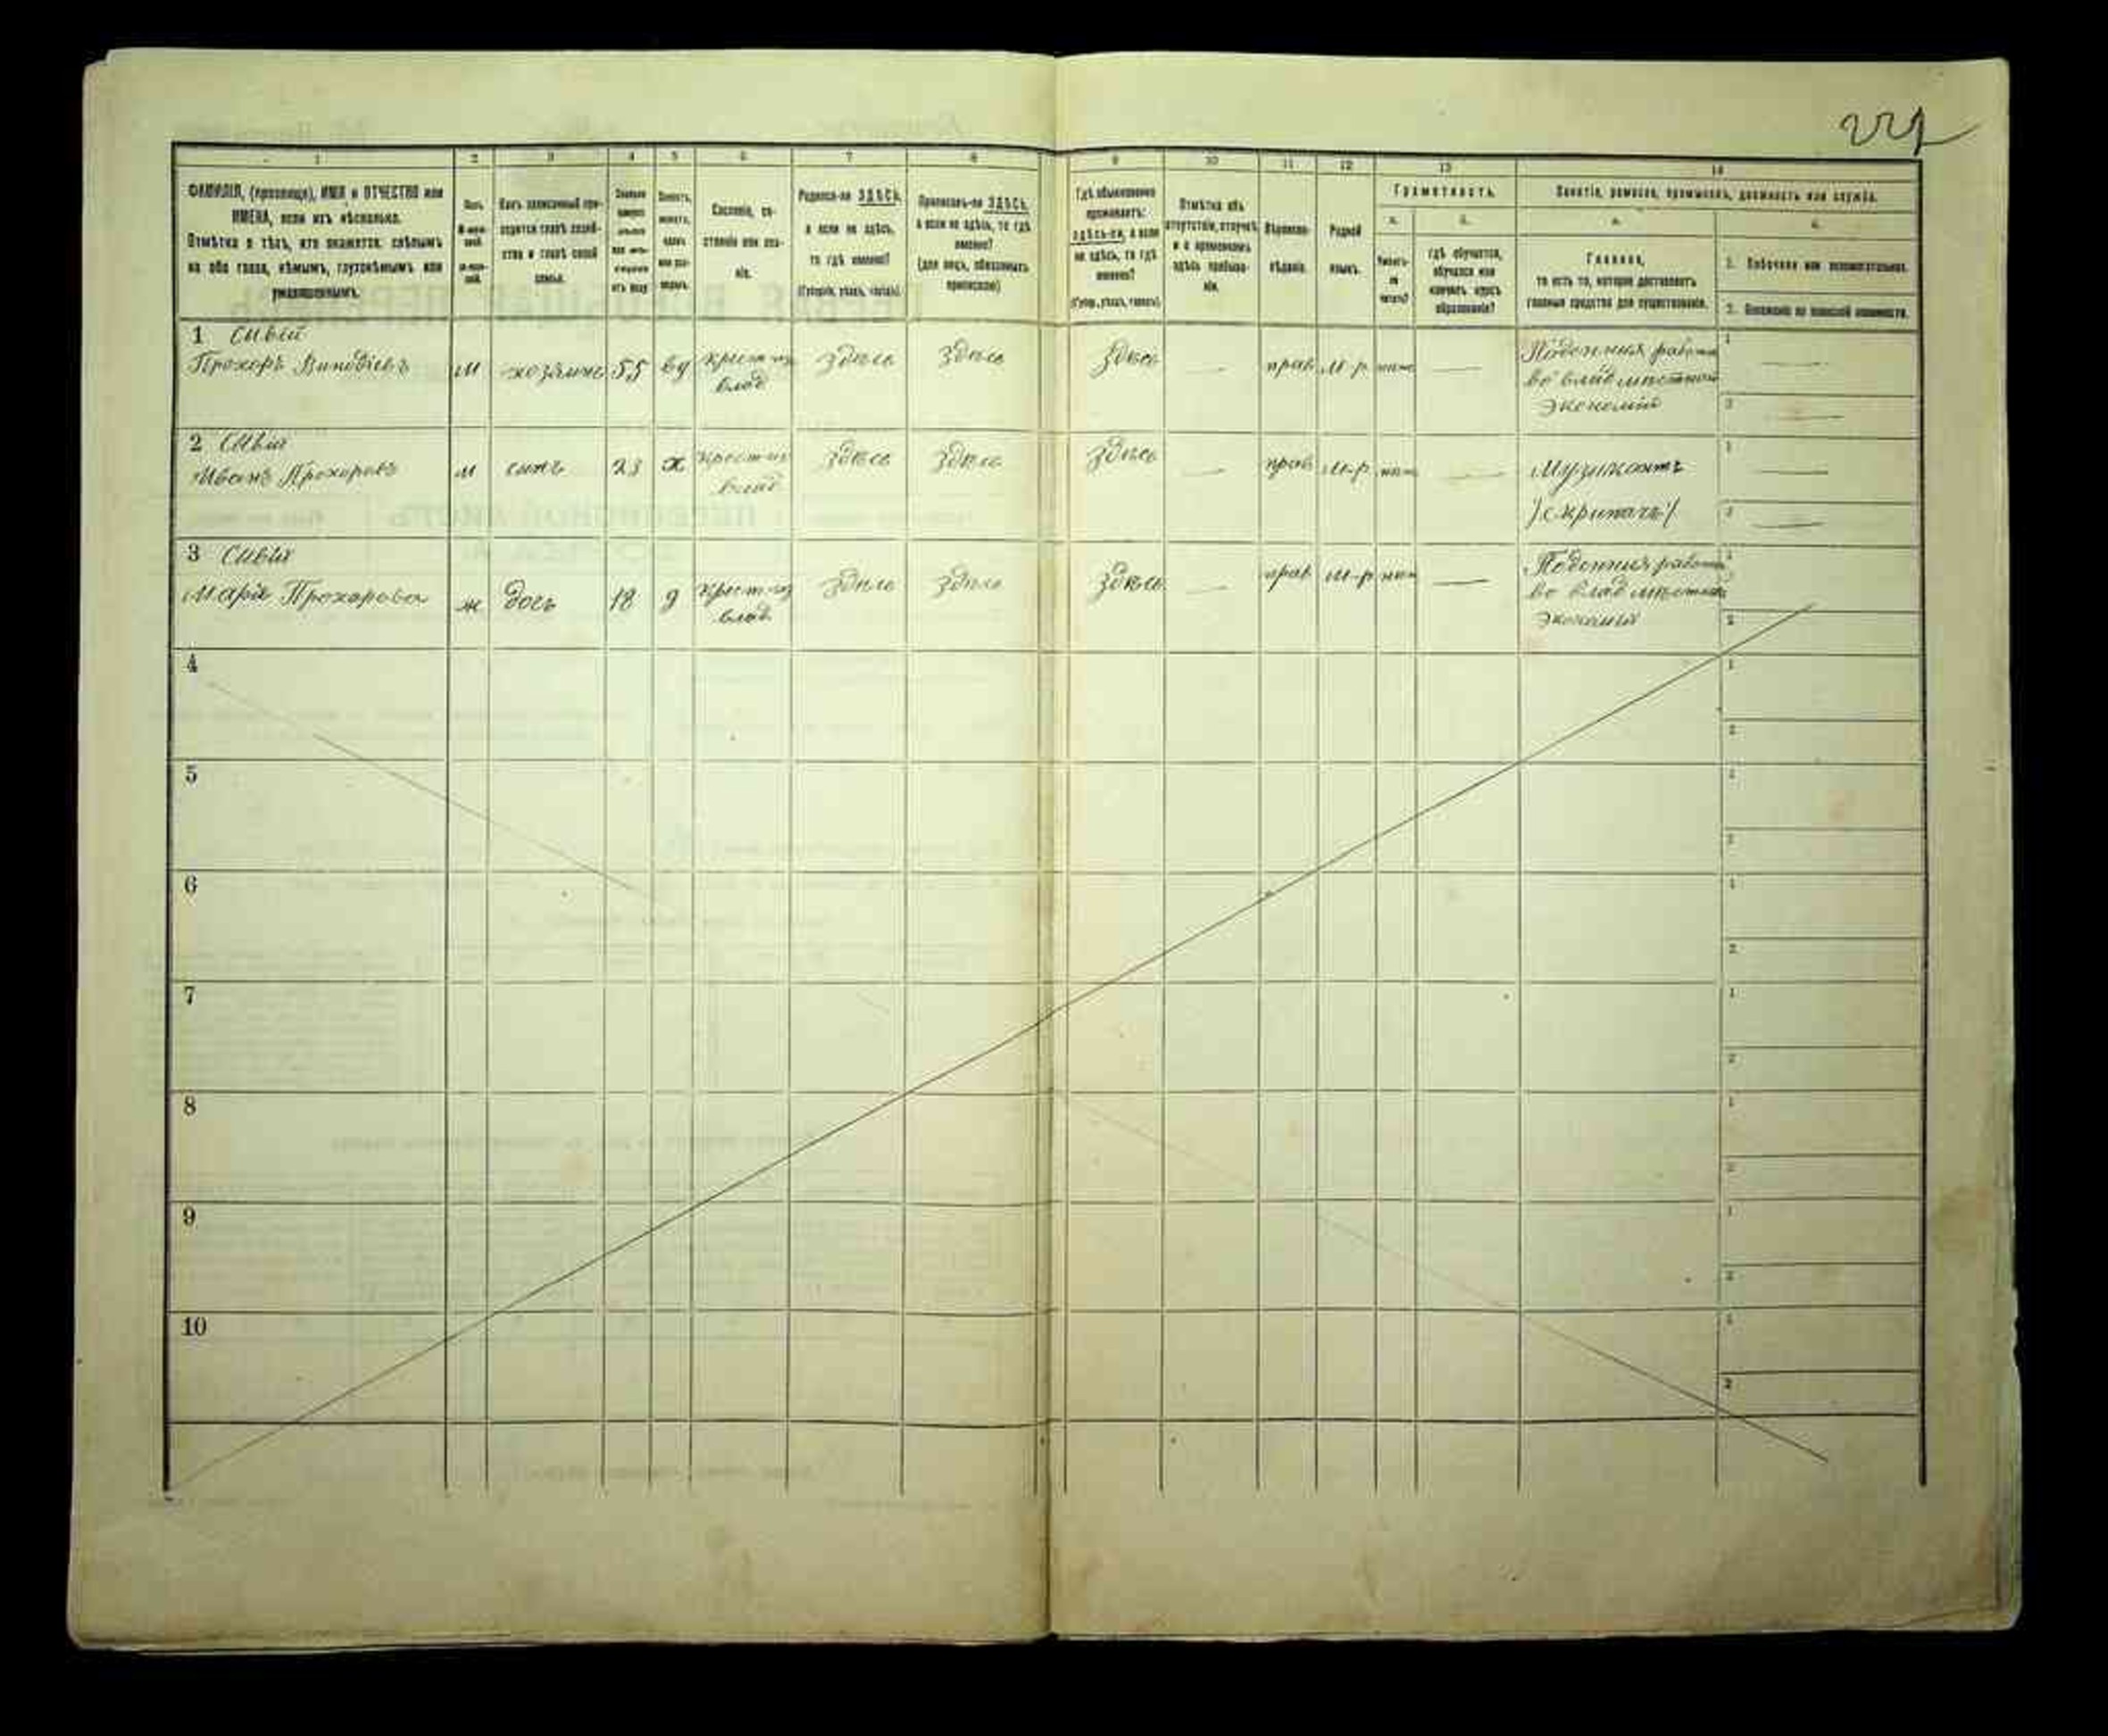 221
1 2 3 4 5 6 7 8 9 10 11 12 13 14
ФАМИЛІЯ, (прозвище), ИМЯ и ОТЧЕСТВО или
ИМЕНА, если ихъ нѣсколько.
Отмѣтка о тѣхъ, кто окажется: слѣпымъ
на оба глаза, нѣмымъ, глухонѣмымъ или
умалишеннымъ.
Какъ записанный при-
ходится главѣ хозяй-
ства и главѣ своей
семьи.
Сословіе, со-
стояніе или зва-
ніе.
Родился-ли ЗДѢСЬ,
а если не здѣсь,
то гдѣ именно?
(Губернія, уѣздъ, городъ).
Приписанъ-ли ЗДѢСЬ,
а если не здѣсь, то гдѣ
именно?
(для лицъ, обязанныхъ
припискою)
Гдѣ обыкновенно
проживаетъ:
здѣсь-ли, а если
не здѣсь, то гдѣ
именно?
(Губер., уѣздъ, городъ).
Отмѣтка объ
отсутствіи, отлучкѣ
и о временномъ
здѣсь пребыва-
ніи.
Вѣроиспо-
вѣданіе.
Родной
языкъ.
Грамотность.
а. б.
Умѣетъ-
ли
читать?
гдѣ обучается,
обучался или
кончилъ курсъ
образованія?
Занятіе, ремесло, промыселъ, должность или служба.
а. б.
Главное,
то есть то, которое доставляетъ
главныя средства для существованія.
1. Побочное или вспомогательное.
2. Положеніе по воинской повинности.
1 Сивій
Прохоръ м хозяинъ 55 вд крест из влад здѣсь здѣсь здѣсь — прав м-р —
Поденная работа
во влад мѣстной
Экономіи
2 Сивій
Иванъ Прохоровъ м сынъ 23 х крест из влад здѣсь здѣсь здѣсь — прав м-р —
Музыкантъ
/скрипачъ/
3 Сивій
Марія Прохорова ж дочь 18 д крест из влад здѣсь здѣсь здѣсь — прав м-р —
Поденная работа
во влад мѣстной
Экономіи
4
5
6
7
8
9
10